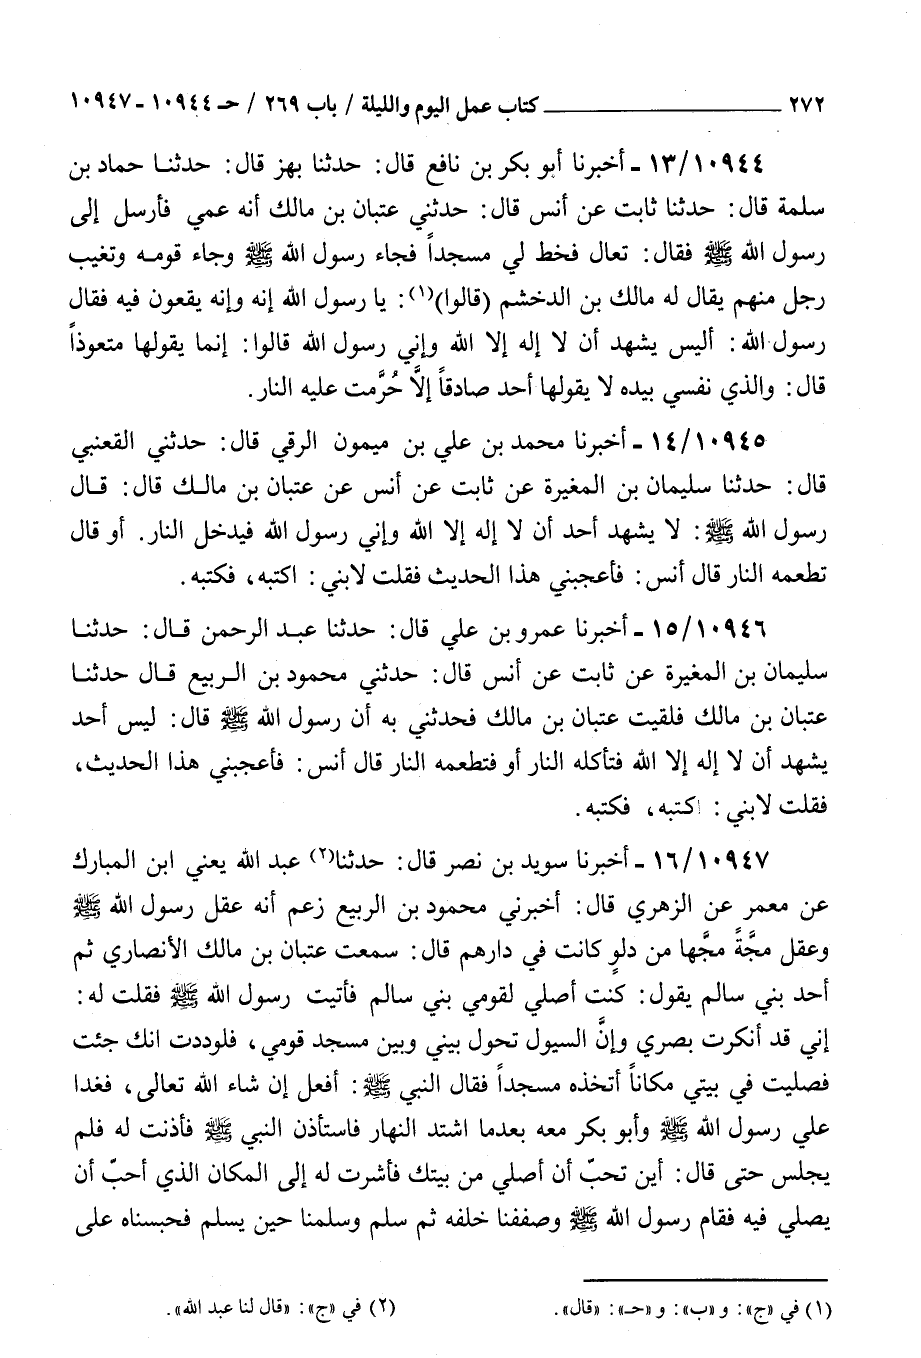 ٢٧٢ ــــــــــــــــــــــــ كتاب عمل اليوم والليلة / باب ٢٦٩ / حـ ١٠٩٤٤ - ١٠٩٤٧
١٣/١٠٩٤٤ - أخبرنا أبو بكر بن نافع قال: حدثنا بهز قال: حدثنا حماد بن
سلمة قال: حدثنا ثابت عن أنس قال: حدثني عتبان بن مالك أنه عمي فأرسل إلى
رسول الله ﷺ فقال: تعال فخط لي مسجداً فجاء رسول الله ﷺ وجاء قومه وتغيب
رجل منهم يقال له مالك بن الدخشم (قالوا)(١): يا رسول الله إنه وإنه يقعون فيه فقال
رسول الله: أليس يشهد أن لا إله إلا الله وإني رسول الله قالوا: إنما يقولها متعوذاً
قال: والذي نفسي بيده لا يقولها أحد صادقاً إلَّا حُرَّمت عليه النار.
١٤/١٠٩٤٥ - أخبرنا محمد بن علي بن ميمون الرقي قال: حدثني القعنبي
قال: حدثنا سليمان بن المغيرة عن ثابت عن أنس عن عتبان بن مالك قال: قال
رسول الله ﷺ: لا يشهد أحد أن لا إله إلا الله وإني رسول الله فيدخل النار. أو قال
تطعمه النار قال أنس: فأعجبني هذا الحديث فقلت لابني: اكتبه، فكتبه.
١٥/١٠٩٤٦ - أخبرنا عمرو بن علي قال: حدثنا عبد الرحمن قال: حدثنا
سليمان بن المغيرة عن ثابت عن أنس قال: حدثني محمود بن الربيع قال حدثنا
عتبان بن مالك فلقيت عتبان بن مالك فحدثني به أن رسول الله ﷺ قال: ليس أحد
يشهد أن لا إله إلا الله فتأكله النار أو فتطعمه النار قال أنس: فأعجبني هذا الحديث،
فقلت لابني: اكتبه، فكتبه.
١٦/١٠٩٤٧ - أخبرنا سويد بن نصر قال: حدثنا(٢) عبد الله يعني ابن المبارك
عن معمر عن الزهري قال: أخبرني محمود بن الربيع زعم أنه عقل رسول الله ﷺ
وعقل مجَّةً مجَّها من دلوٍ كانت في دارهم قال: سمعت عتبان بن مالك الأنصاري ثم
أحد بني سالم يقول: كنت أصلي لقومي بني سالم فأتيت رسول الله ﷺ فقلت له:
إني قد أنكرت بصري وإنَّ السيول تحول بيني وبين مسجد قومي، فلوددت انك جئت
فصليت في بيتي مكاناً أتخذه مسجداً فقال النبي ﷺ: أفعل إن شاء الله تعالى، فغدا
علي رسول الله ﷺ وأبو بكر معه بعدما اشتد النهار فاستأذن النبي ﷺ فأذنت له فلم
يجلس حتى قال: أين تحبّ أن أصلي من بيتك فأشرت له إلى المكان الذي أحبّ أن
يصلي فيه فقام رسول الله ﷺ وصففنا خلفه ثم سلم وسلمنا حين يسلم فحبسناه على
(١) في «ج»: و «ب»: و «حـ»: «قال».
(٢) في «ج»: «قال لنا عبد الله».